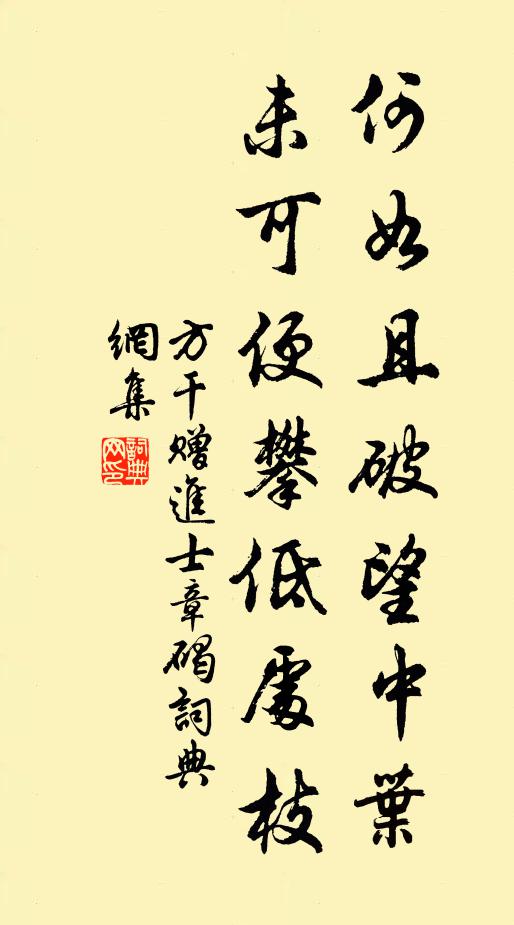 何如且破望中葉
未可便攀低處枝
方干贈進士章碣詞典
網集
詞典
网印